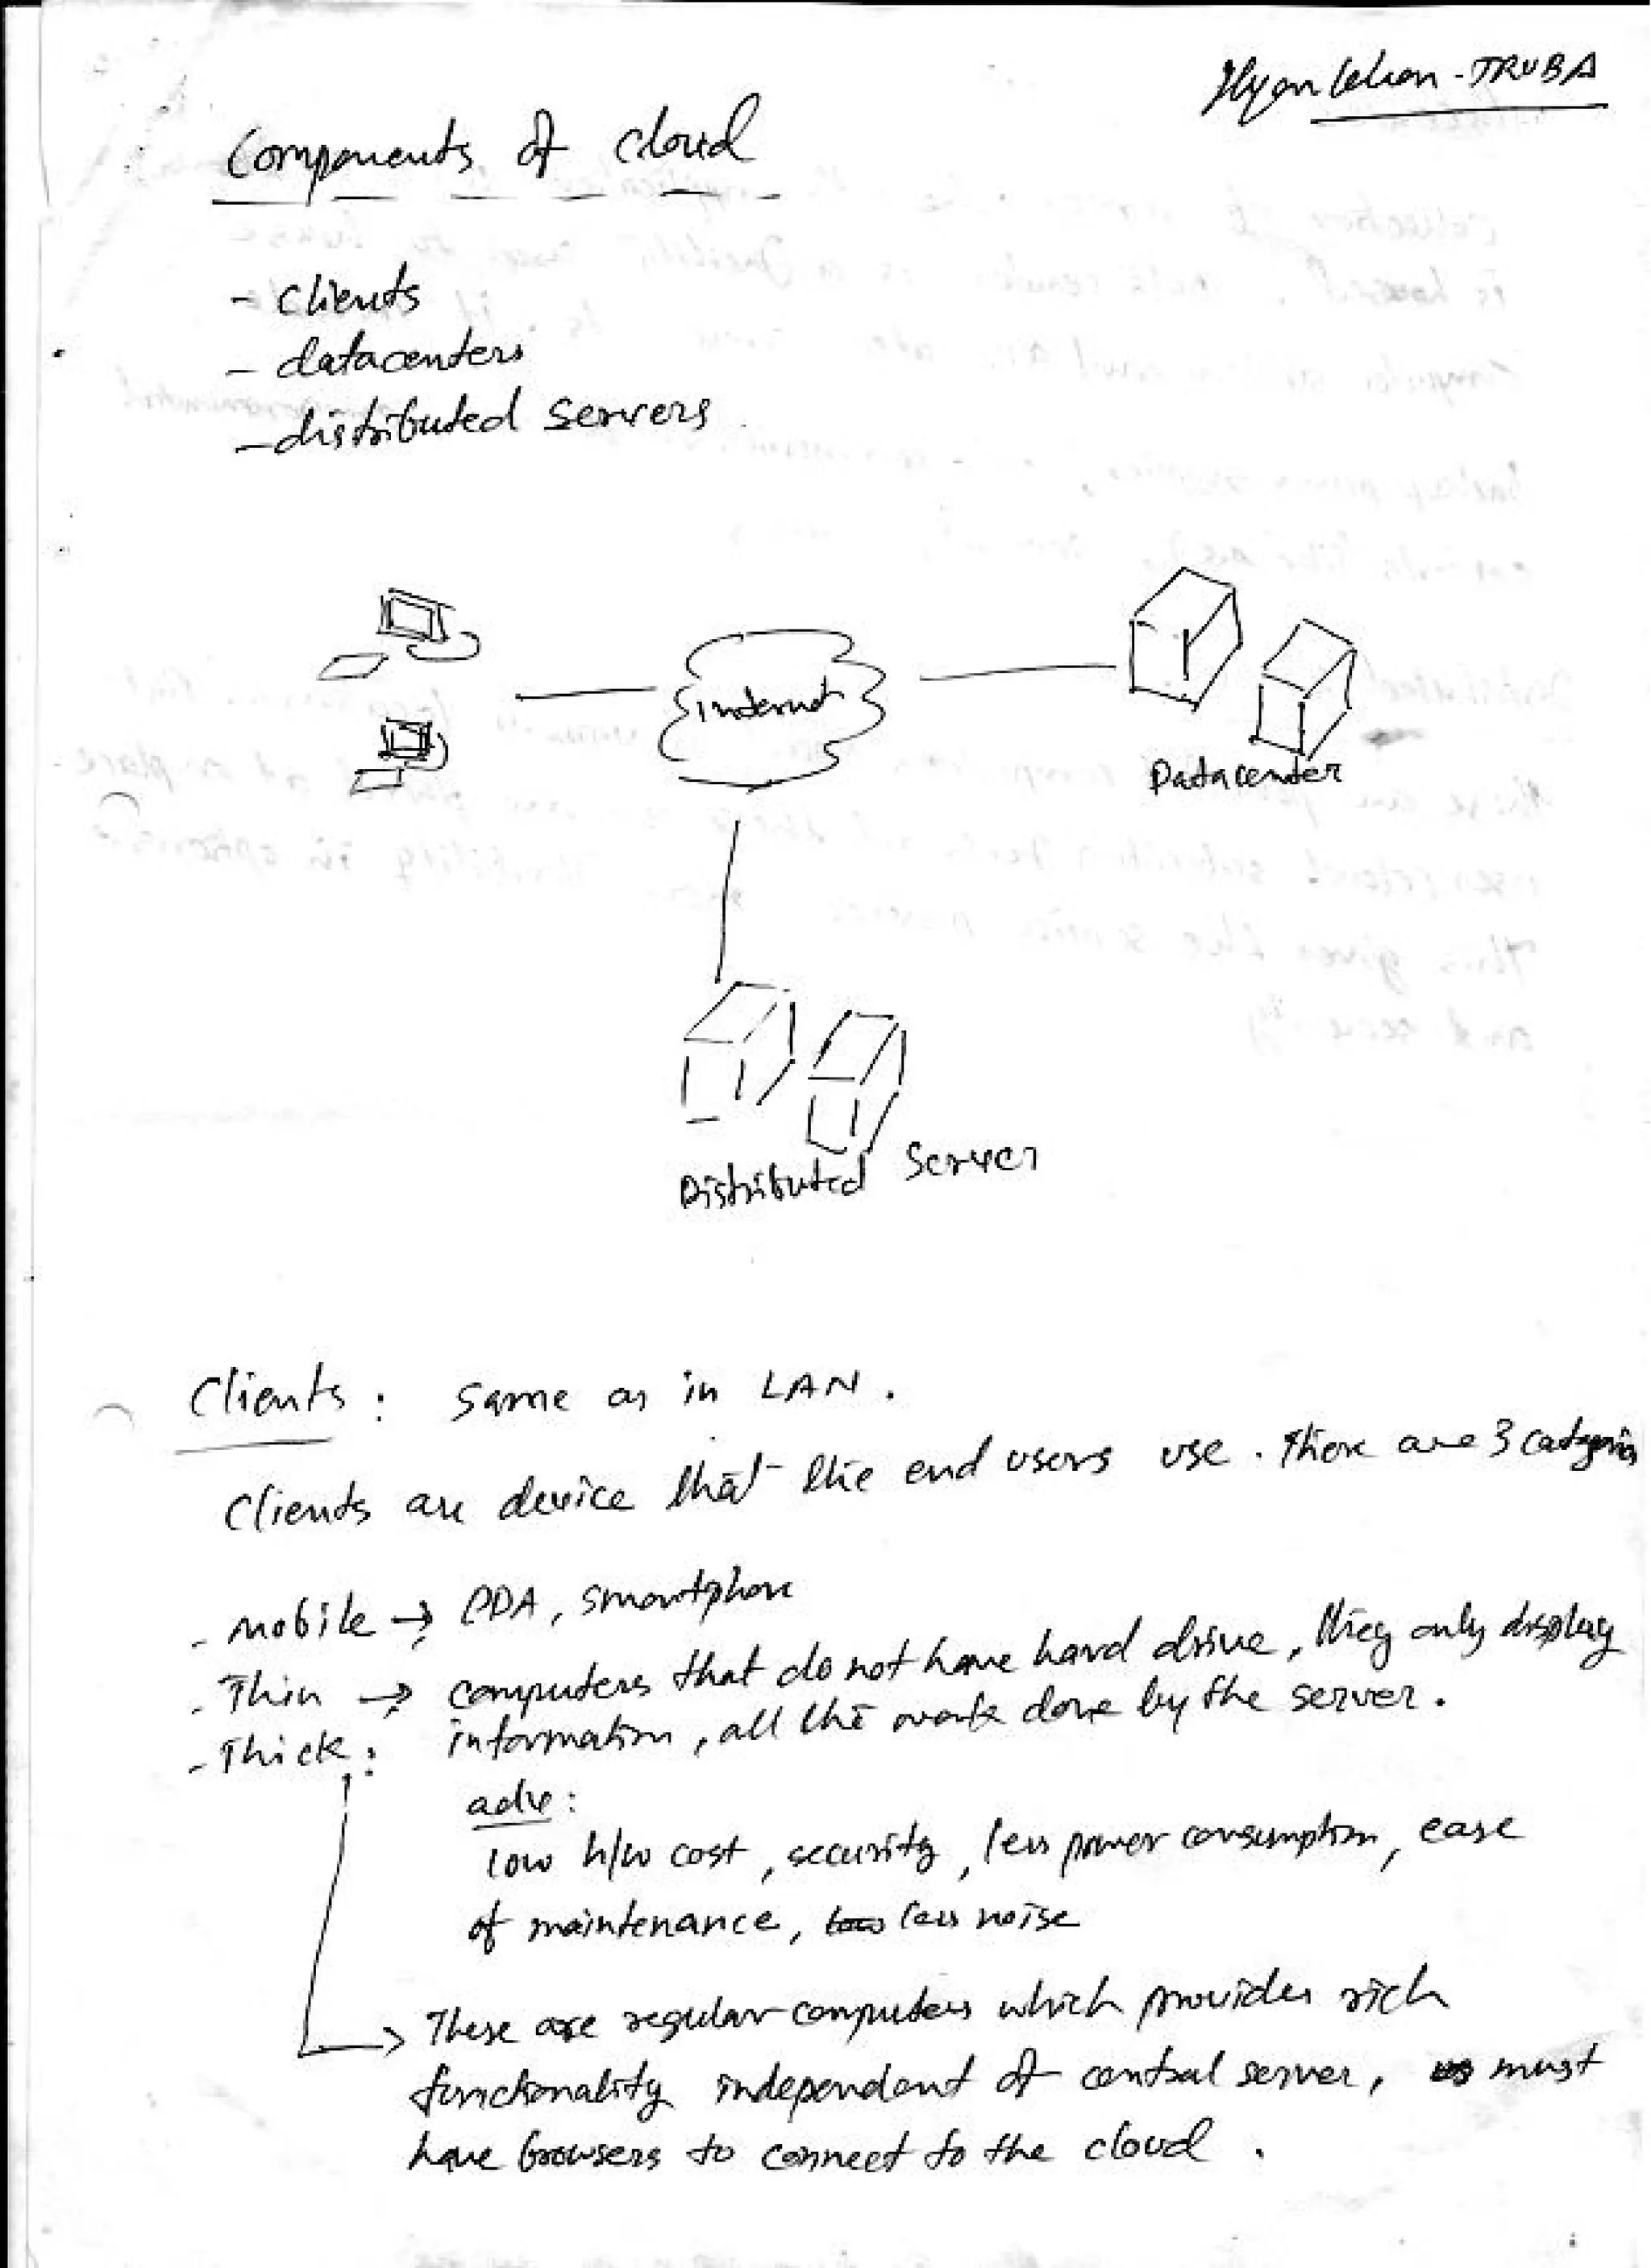 - TRUBA
Components of cloud
- clients
- datacenters
- distributed servers
internet
Datacenter
Distributed Server
Clients : Same as in LAN .
Clients are device that the end users use . There are 3 categories
- mobile → PDA, smartphone
- Thin → computers that do not have hard drive, they only display
- Thick : information, all the work done by the server .
adv :
low h/w cost, security, less power consumption, ease
of maintenance, less noise
These are regular computers which provides rich
functionality independent of central server, must
have browsers to connect to the cloud .